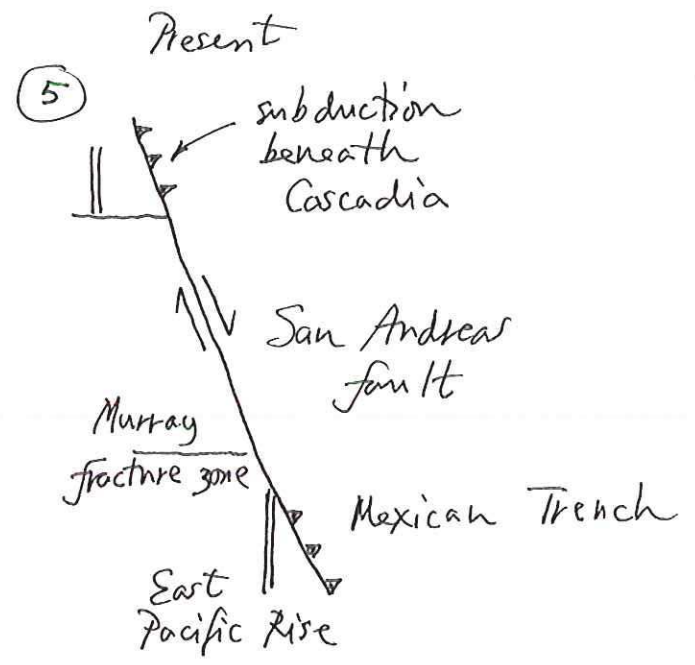 Present
5
subduction
beneath
Cascadia
San Andreas
fault
Murray
fracture zone
Mexican Trench
East
Pacific Rise